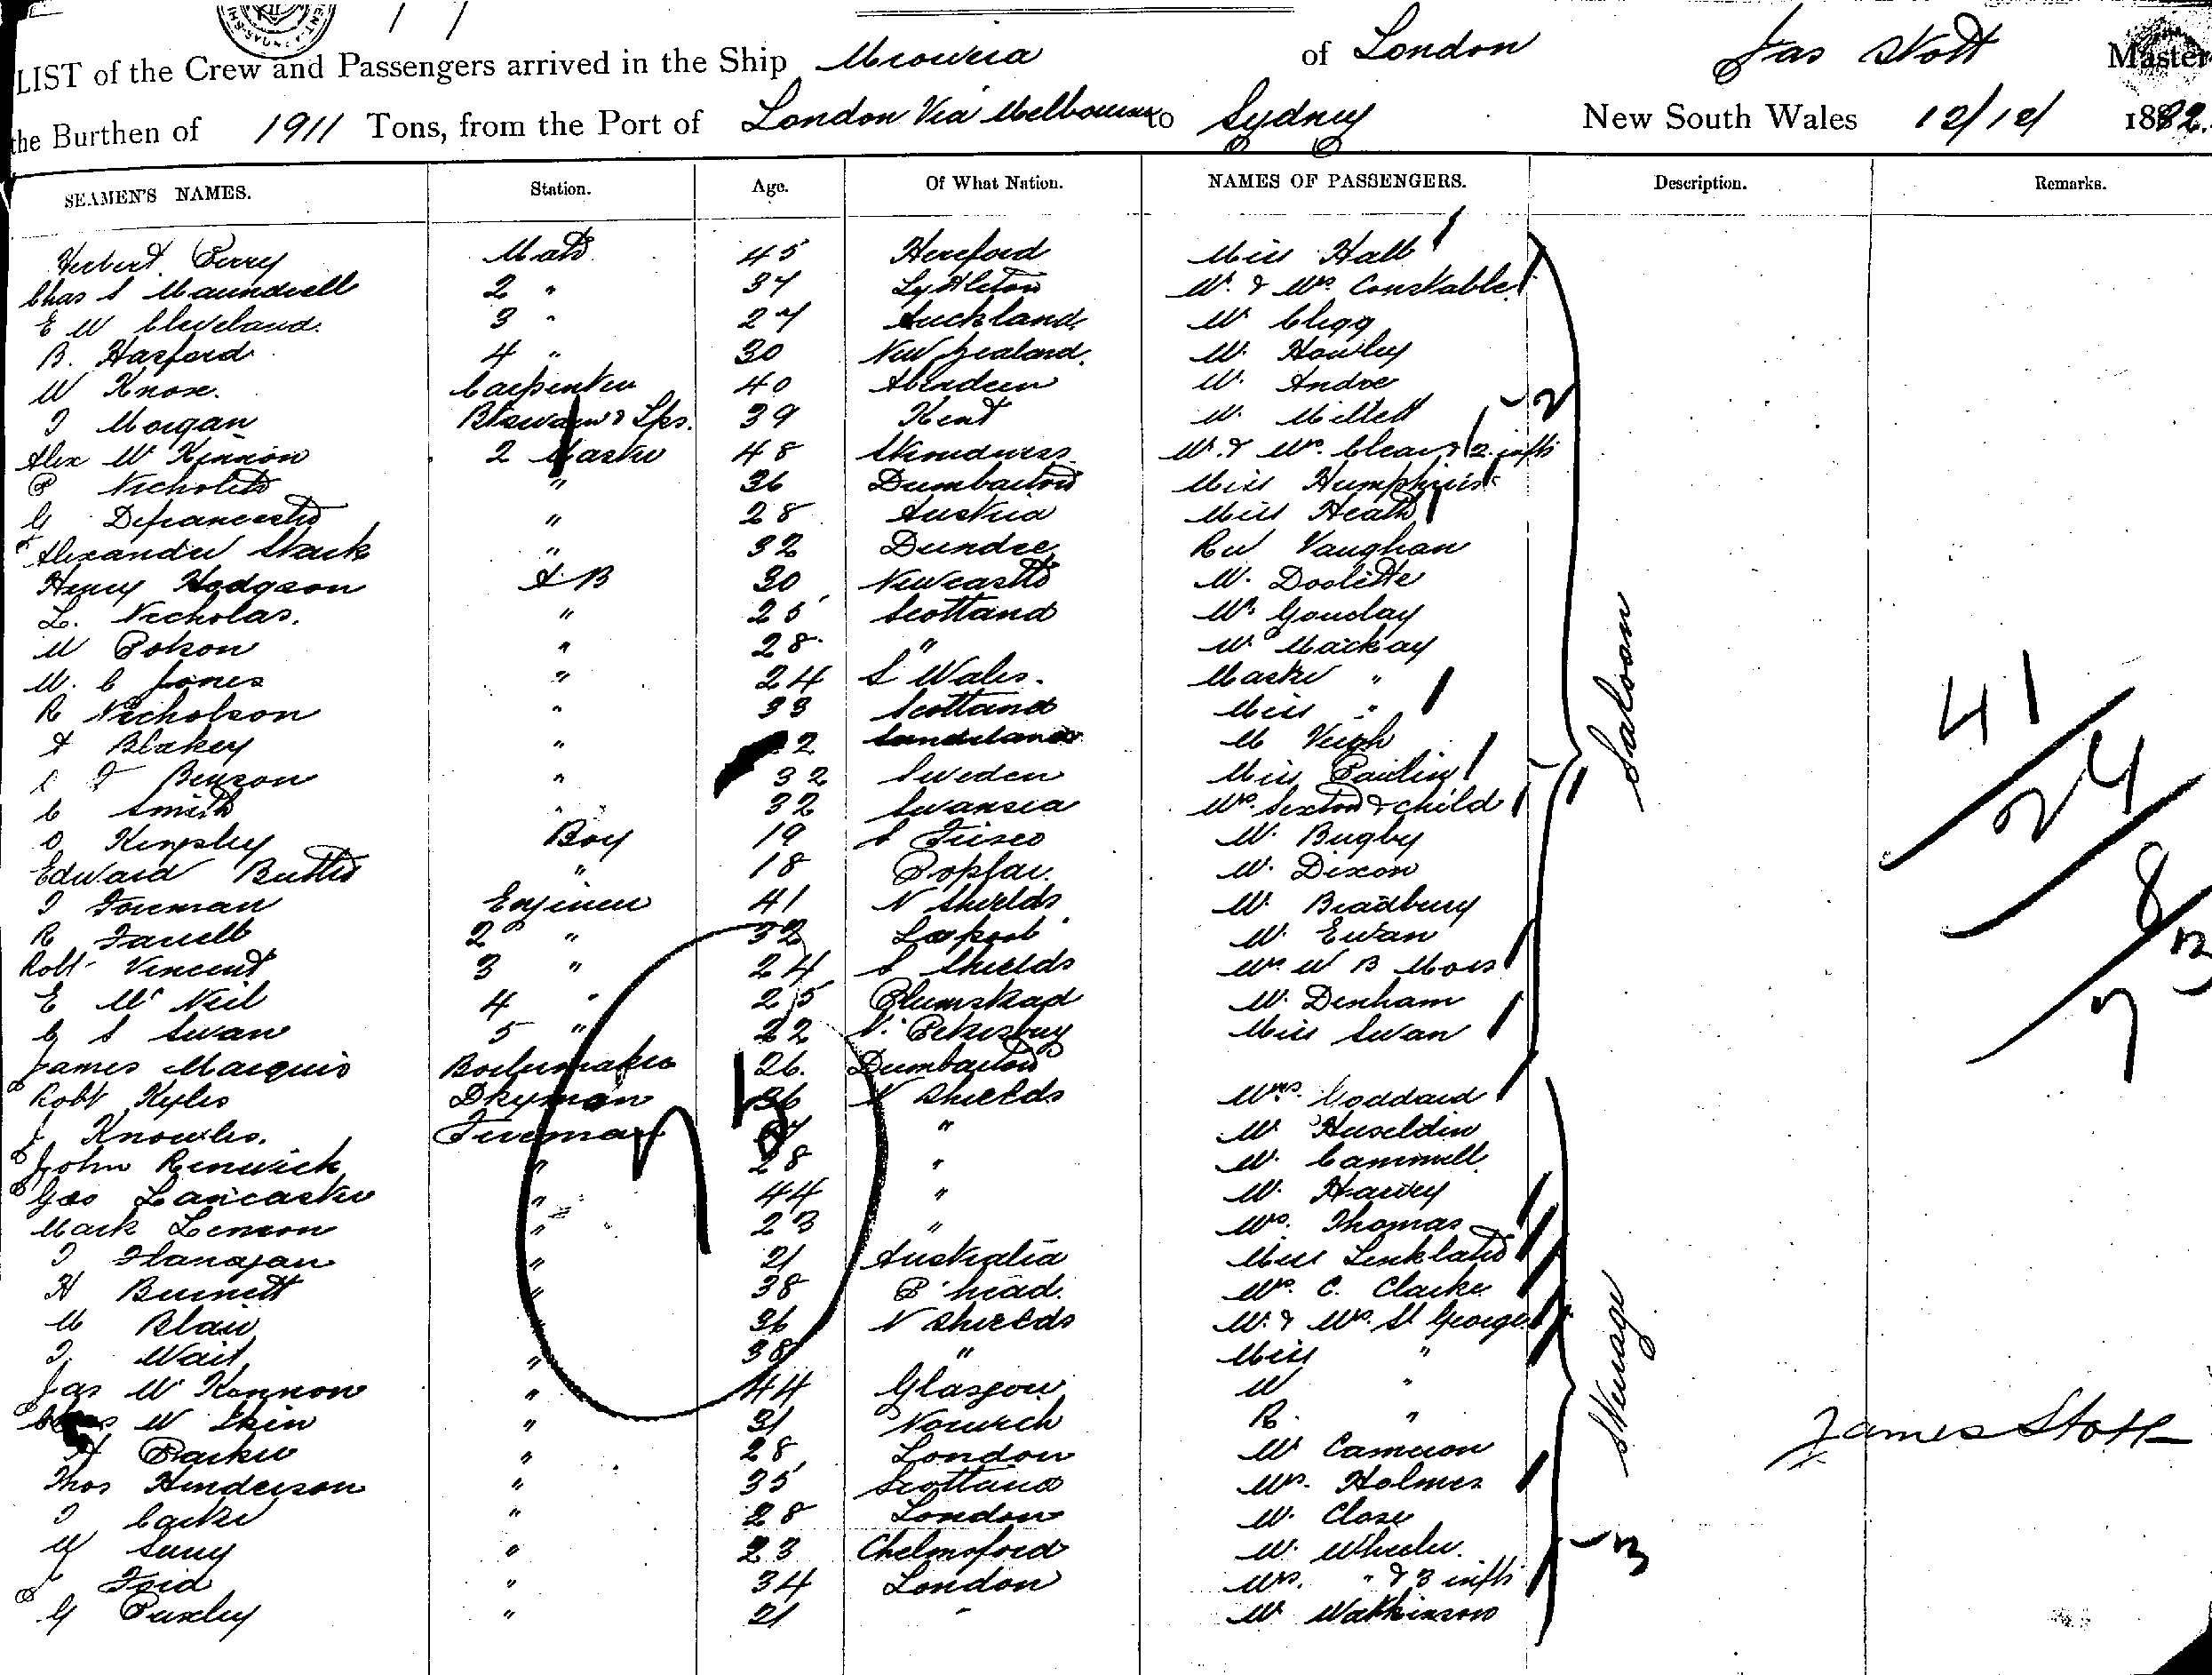 LIST of the Crew and Passengers arrived in the Ship of London Jas Stott Master
the Burthen of 1911 Tons, from the Port of London Via Melbourne to Sydney New South Wales 12/12/ 1882.
SEAMEN'S NAMES. Station. Age. Of What Nation. NAMES OF PASSENGERS. Description. Remarks.
Herbert Perry Mate 45 Hereford Miss Hall
Chas S Maundrell 2 " 34 Lyttleton Mr. & Mrs. Constable
E W Cleveland. 3 " 27 Auckland. Mr Clegg
B. Harford 4 " 30 New Zealand. Mr. Howley
W Knox. Carpenter 40 Aberdeen Mr. Andre
J Morgan 39 Kent Mr. Millett
Alex Mc Kinnon 2 Master 48 Mr. & Mrs. & 2 infts
P " 36 Dumbarton Miss Humphries
G " 28 Austria Miss Heath
Alexander Stark " 32 Dundee Rev Vaughan
Henry Hodgson A B 30 Newcastle Mr. Doolette
L. Nicholas. " 25 Scotland Mr Gourlay
W Polson " 28 " Mr Mackay
W. C Jones " 24 S Wales. Master "
R Nicholson " 33 Scotland Miss "
A Blakey " 2 M Veigh
J Benson " 32 Sweden Miss Pauling
C Smith " 32 Swansea Mrs. Sexton & child
O Kingsley Boy 19 S Frisco Mr. Bugby
Edward Butler " 18 Poplar. Mr. Dixon
J Foreman Engineer 41 N Shields Mr. Bradbury
R Farrell 2 " 32 L pool Mr. Ewan
Robt Vincent 3 " 24 S Shields Mrs W B
E Mc Neil 4 " 25 Plumstead Mr. Denham
C S Swan 5 " 22 St. Petersburg Miss Swan
Saloon
James Marquis Boilermaker 26. Dumbarton
Robt Kyles Dkyman 36 N Shields Mrs. Goddard
J Knowles. Fireman " Mr Huseldin
John Renwick " 28 " Mr. Cammell
Geo Lancaster " 44 " Mr. Harvey
Mark Lennon " 23 " Mrs. Thomas
J Flanagan " 21 Australia Miss Linklater
H Burnett " 38 B'head. Mrs. C. Clarke
M Blair " 36 N Shields Mr. & Mrs. St George
J. Wait " 38 " Miss "
Jas Mc Kennon " 44 Glasgow W "
W Skin " 31 Norwich R. "
A Parker " 28 London Mr Cameron
Thos Henderson " 35 Scotland Mrs. Holmes
J Carter " 28 London Mr. Close
" 23 Chelmsford Mr. Wheeler.
" 34 London Mrs. " & 3 infts
G Puxley " 21 " Mr Watkinson
Steerage
41
24
8
3
7
James Stott